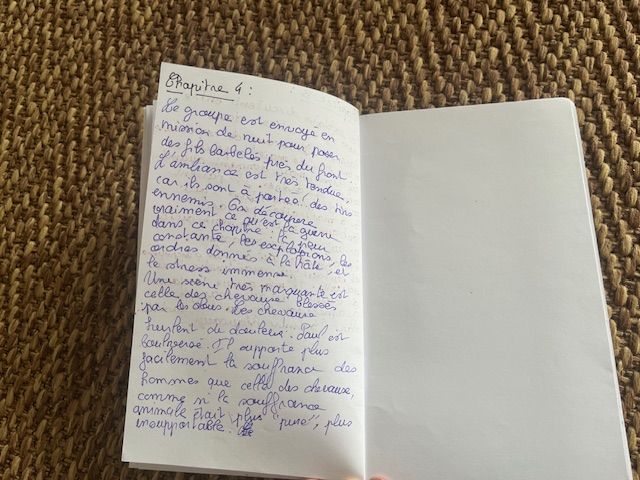 Chapitre 4 :
Le groupe est envoyé en
mission de nuit pour poser
des fils barbelés près du front
L'ambiance est très tendue,
car ils sont à portée des tirs
ennemis. On découvre
vraiment ce qu'est la guerre
dans ce chapitre : la peur
constante, les explosions, les
ordres donnés à la hâte, et
le stress immense.
Une scène très marquante est
celle des chevaux blessés
par les obus. Les chevaux
hurlent de douleur. Paul est
bouleversé. Il supporte plus
facilement la souffrance des
hommes que celle des chevaux,
comme si la souffrance
animale était plus "pure", plus
insupportable.